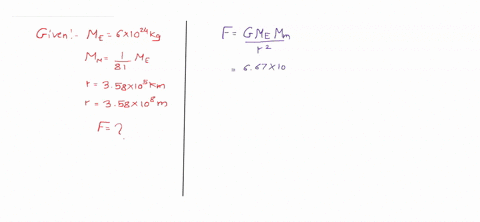 Given:- M_E = 6×10^24 kg
M_M = 1/81 M_E
r = 3.58×10^5 Km
r = 3.58×10^8 m
F = ?
F = G M_E M_m / r^2
= 6.67×10